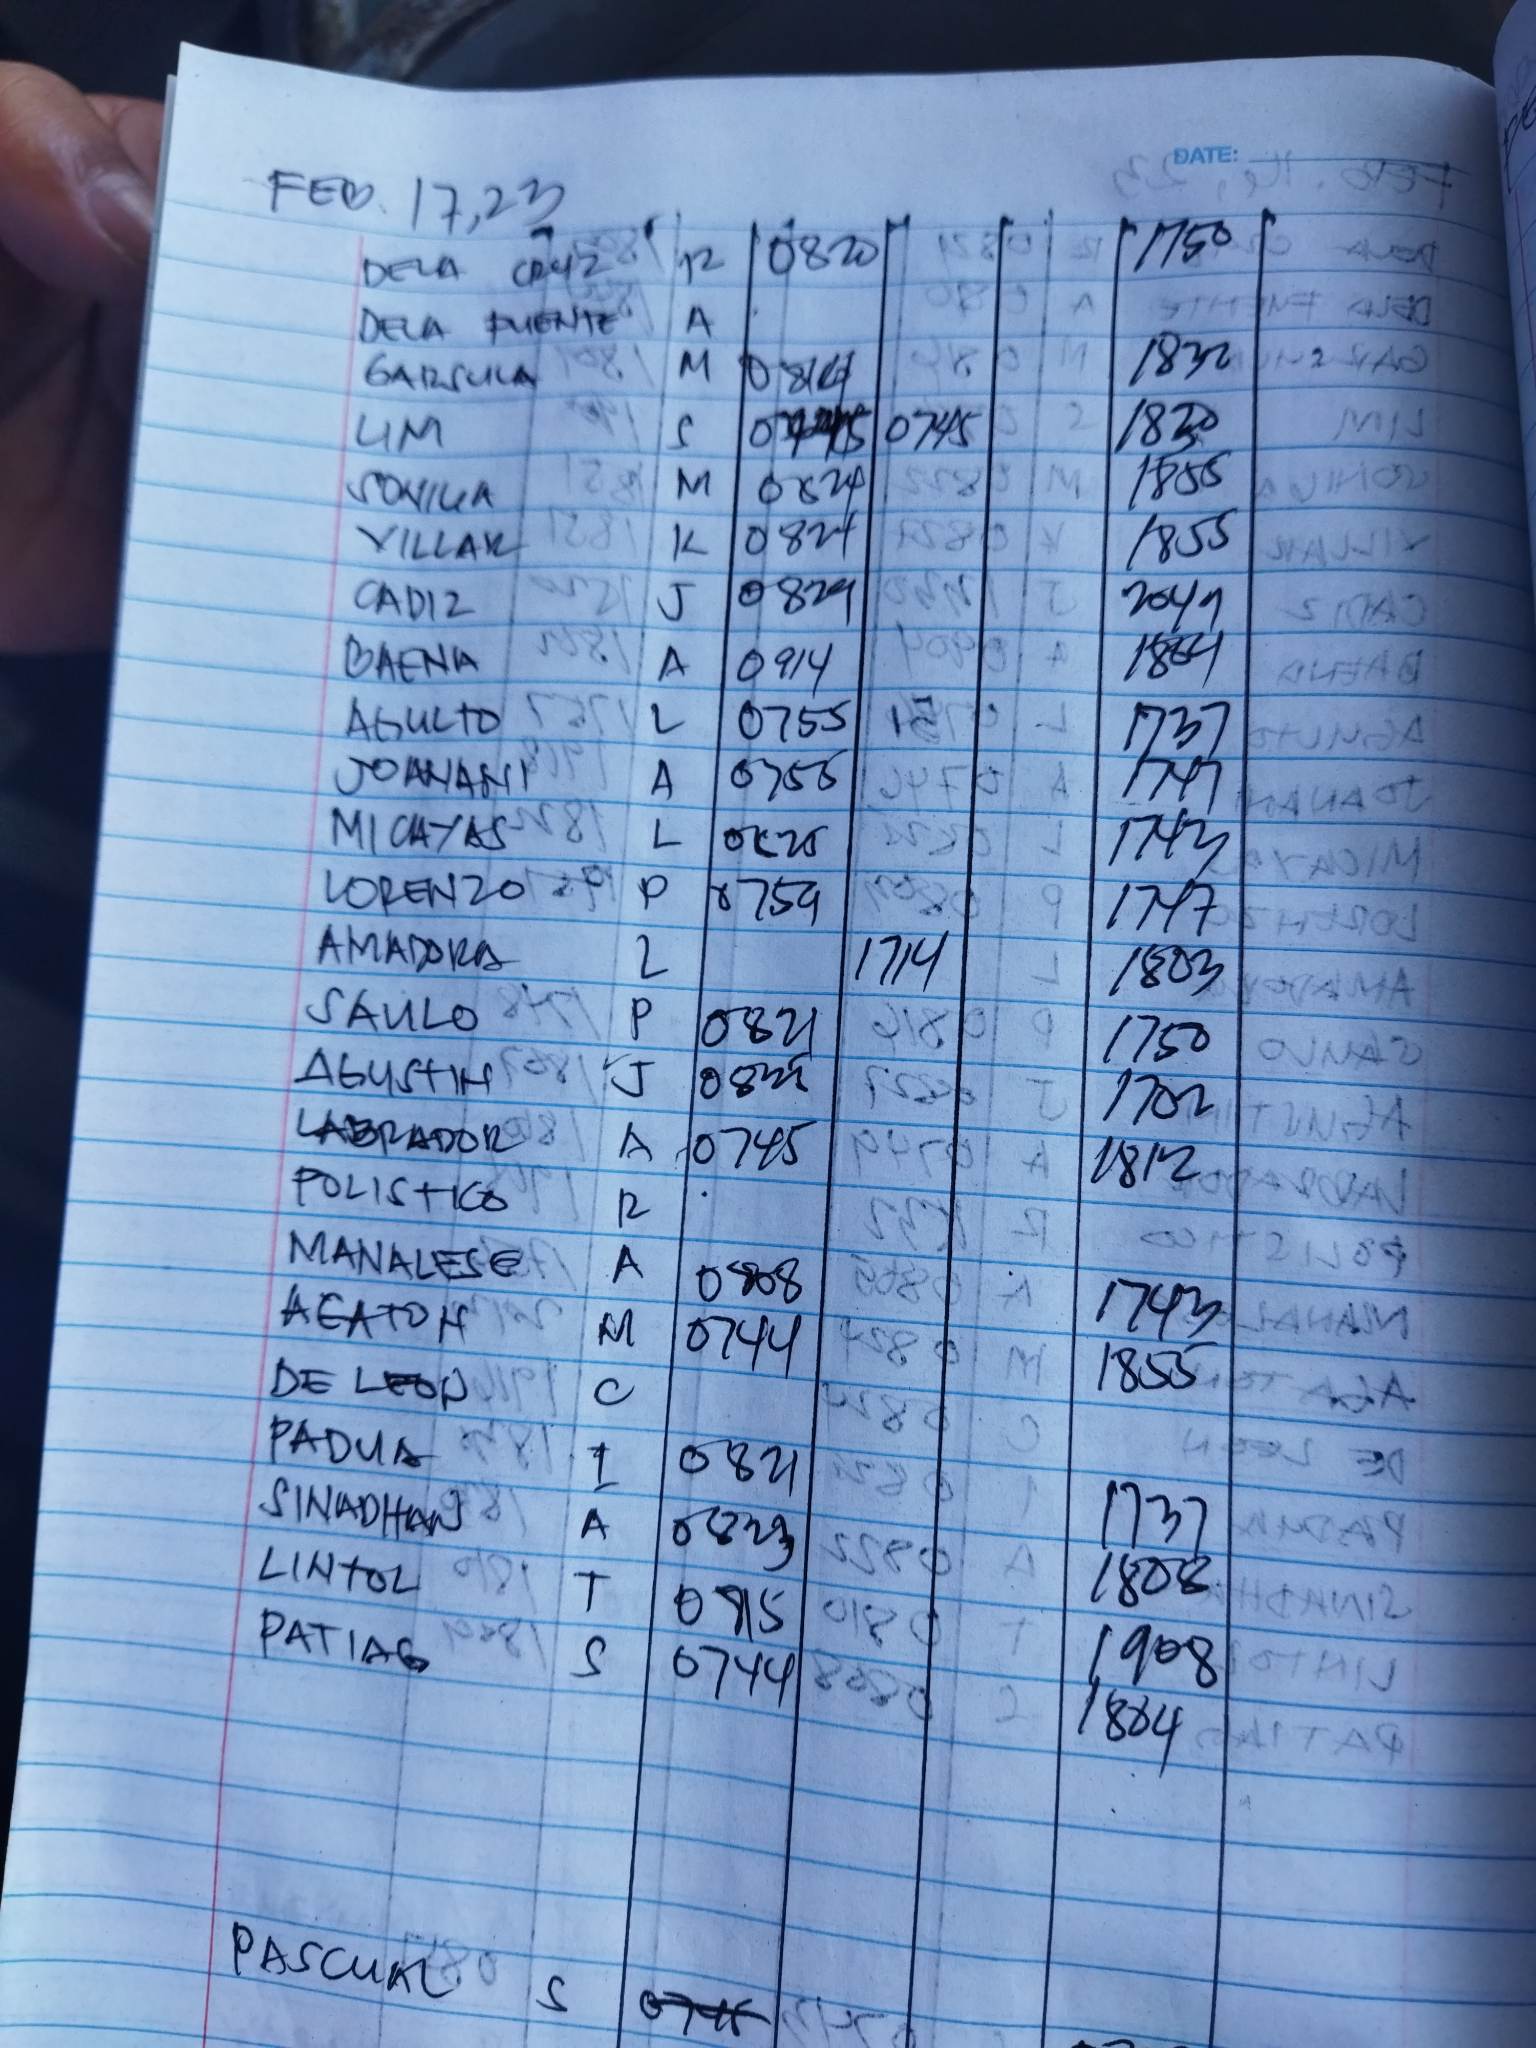 DATE:
FEB. 17,23
DELA CRUZ R 0820 1750
DELA FUENTE A
GARSULA M 0814 1832
LIM S 0745 1820
SONILLA M 0824 1855
VILLAR K 0824 1855
CADIZ J 0829 2047
BAENA A 0914 1804
AGULTO L 0755 1737
JOANANI A 0755 1747
MICAYAS L 0825 1743
LORENZO P 0759 1747
AMADORA L 1714 1803
SAULO P 0821 1750
AGUSTIN J 1702
LABRADOR A 0745 1812
POLISTICO R
MANALESE A 0808 1743
AGATON M 0744 1855
DE LEON C
PADUA I 0821 1737
SINADHAN A 0823 1808
LINTOL T 0815 1908
PATIAG S 0744 1804
PASCUAL S 0745